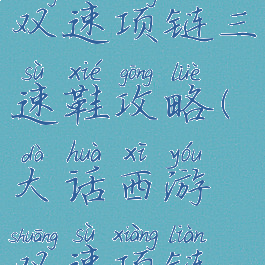 双速项链三
sù xié gōng lüè
速鞋攻略(
dà huà xī yóu
大话西游
shuāng sù xiàng liàn
双速项链